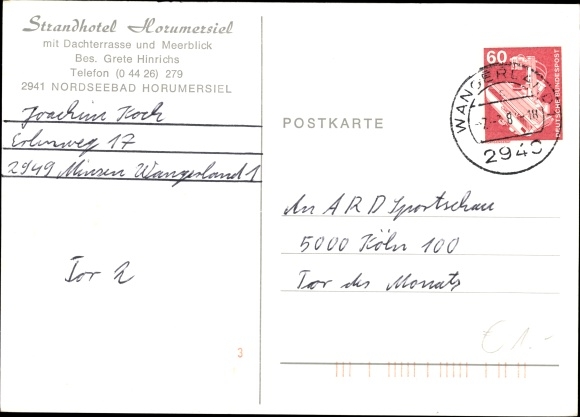 Strandhotel Horumersiel
mit Dachterrasse und Meerblick
Bes. Grete Hinrichs
Telefon (0 44 26) 279
2941 NORDSEEBAD HORUMERSIEL
Joachim Koch
17
2949 Minsen Wangerland 1
Tor 2
3
POSTKARTE
60
DEUTSCHE BUNDESPOST
WANGERLAND
2949
An ARD Sportschau
5000 Köln 100
Tor des Monats
€ 1.-